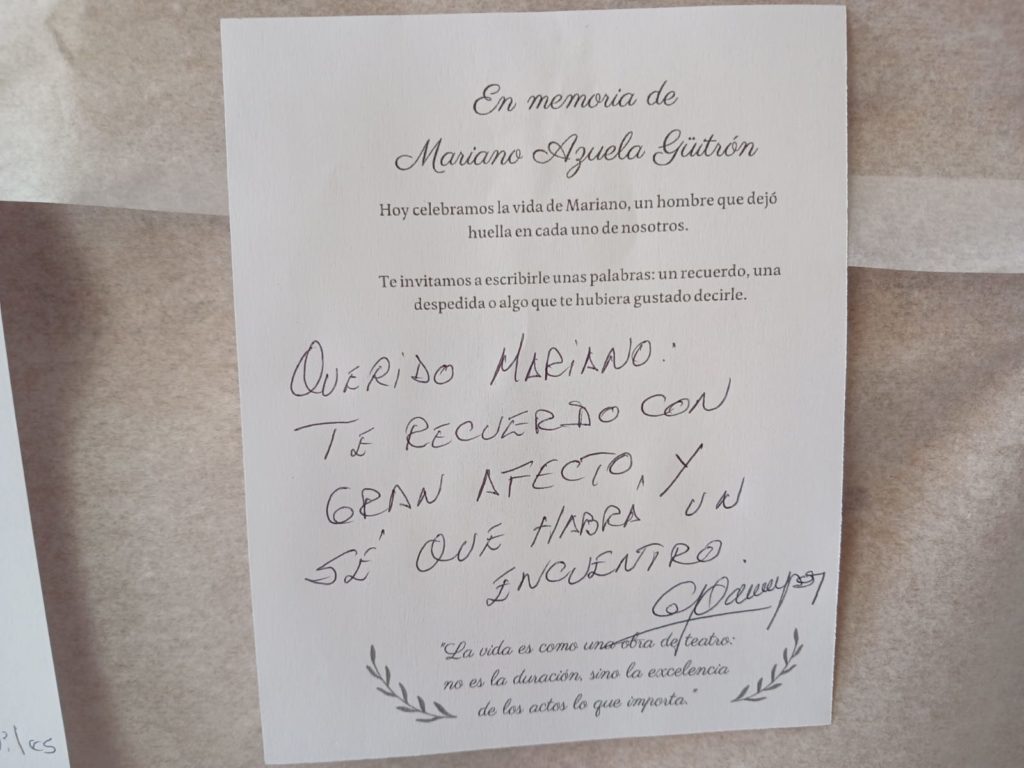 En memoria de
Mariano Azuela Güitrón
Hoy celebramos la vida de Mariano, un hombre que dejó
huella en cada uno de nosotros.
Te invitamos a escribirle unas palabras: un recuerdo, una
despedida o algo que te hubiera gustado decirle.
QUERIDO MARIANO:
TE RECUERDO CON
GRAN AFECTO, Y
SÉ QUE HABRÁ UN
ENCUENTRO.
"La vida es como una obra de teatro:
no es la duración, sino la excelencia
de los actos lo que importa."